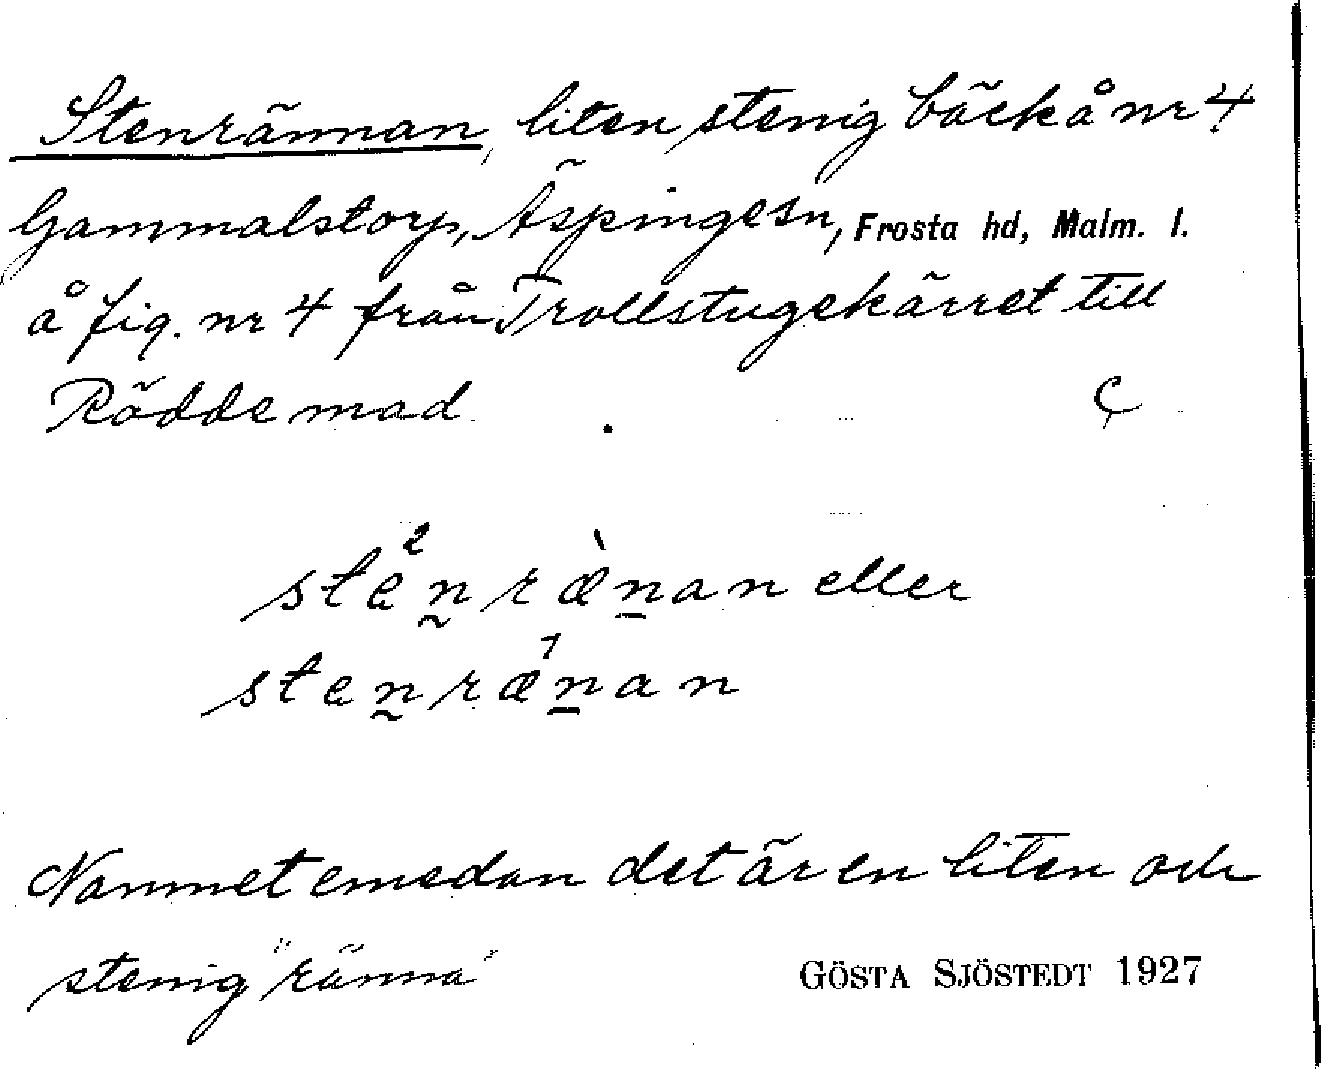 Stenrännan, liten stenig bäck å nr 4
Gammalstorp, Äspinge sn, Frosta hd, Malm. l.
å fig. nr 4 från Trollstugekärret till
Rödde mad. C
stenrænan eller
stenrænan
Namnet emedan det är en liten och
stenig "ränna"
GÖSTA SJÖSTEDT 1927